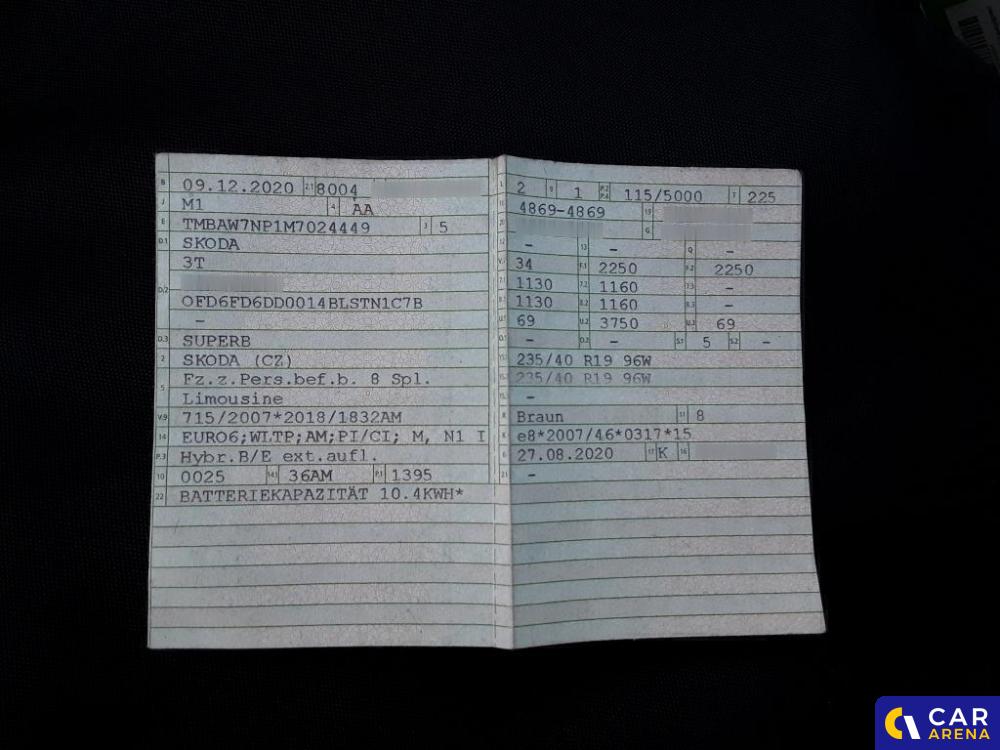 B 09.12.2020 2.1 8004
J M1 4 AA
E TMBAW7NP1M7024449 3 5
D.1 SKODA
3T
D.2
OFD6FD6DD0014BLSTN1C7B
–
D.3 SUPERB
2 SKODA (CZ)
5 Fz.z.Pers.bef.b. 8 Spl.
Limousine
V.9 715/2007*2018/1832AM
14 EURO6;WLTP;AM;PI/CI; M, N1 I
P.3 Hybr.B/E ext.aufl.
10 0025 14.1 36AM P.1 1395
22 BATTERIEKAPAZITÄT 10.4KWH*
L 2 9 1 P.2 P.4 115/5000 T 225
18 4869-4869 19
20 G
12 – 13 – Q –
V.7 34 F.1 2250 F.2 2250
7.1 1130 7.2 1160 7.3 –
8.1 1130 8.2 1160 8.3 –
U.1 69 U.2 3750 U.3 69
O.1 – O.2 – S.1 5 S.2 –
15.1 235/40 R19 96W
15.2 235/40 R19 96W
15.3 –
R Braun 11 8
K e8*2007/46*0317*15
6 27.08.2020 17 K 16
21 –
CAR
ARENA